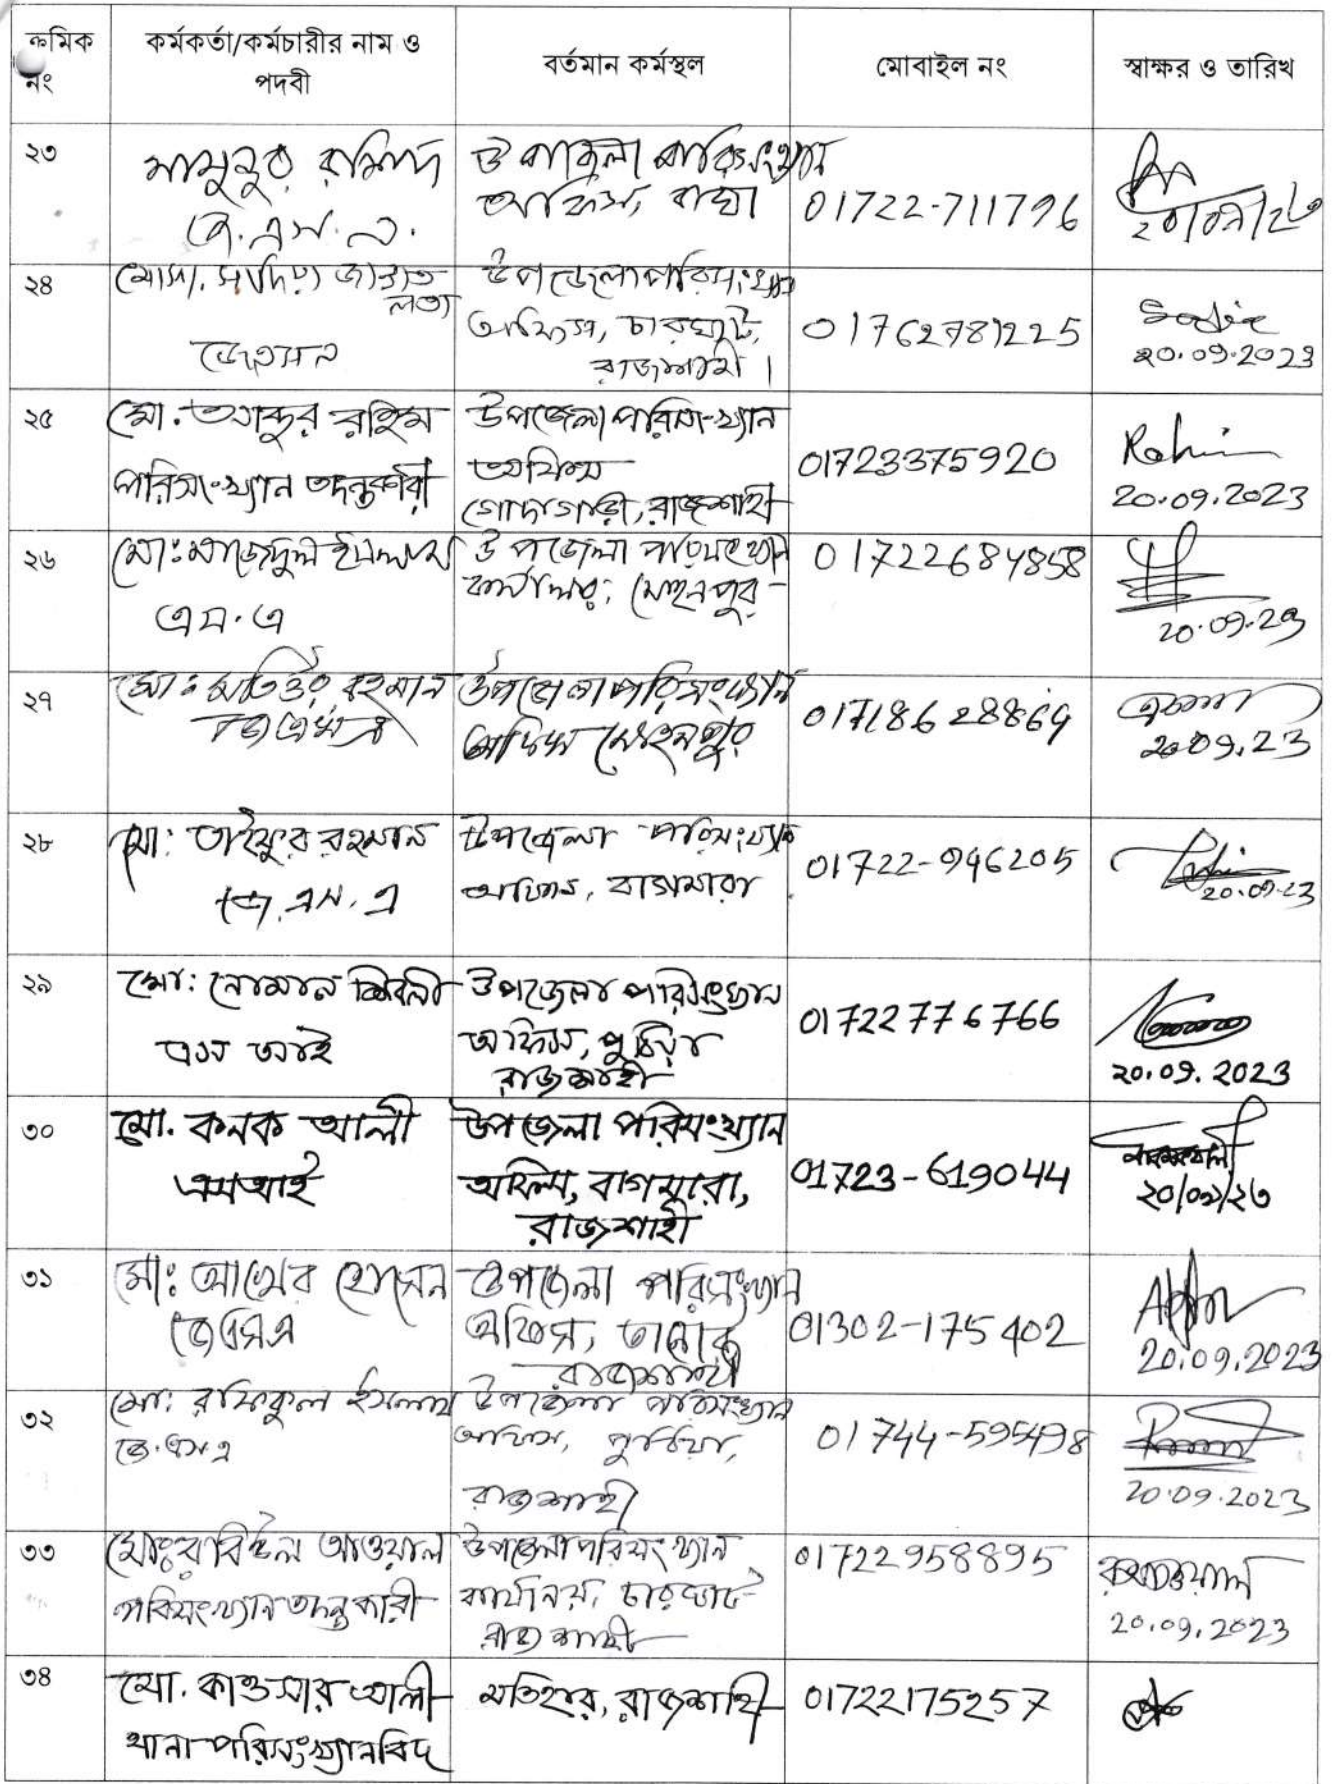 ক্রমিক নং
কর্মকর্তা/কর্মচারীর নাম ও পদবী
বর্তমান কর্মস্থল
মোবাইল নং
স্বাক্ষর ও তারিখ
২৩
মামুনুর রশিদ
জে.এস.এ.
উপজেলা পরিসংখ্যান
অফিস, বাঘা
01722-711796
২০/০৯/২৩
২৪
মোসা. সাদিয়া জান্নাত
লতা
জেএসএ
উপজেলা পরিসংখ্যান
অফিস, চারঘাট,
রাজশাহী।
01762781225
Sadia
20.09.2023
২৫
মো. আব্দুর রহিম
পরিসংখ্যান তদন্তকারী
উপজেলা পরিসংখ্যান
অফিস
গোদাগাড়ী, রাজশাহী
01723375920
Rahim
20.09.2023
২৬
মো: মাজেদুল ইসলাম
এস.এ
উপজেলা পরিসংখ্যান
কার্যালয়, মোহনপুর
01722684858
20.09.23
২৭
মো: মতিউর রহমান
জেএসএ
উপজেলা পরিসংখ্যান
অফিস মোহনপুর
01718628869
20.09.23
২৮
মো: রহমান
জে.এস.এ
উপজেলা পরিসংখ্যান
অফিস, বাগমারা
01722-946205
20.09.23
২৯
মো: নোমান শিবলী
এস আই
উপজেলা পরিসংখ্যান
অফিস, পুঠিয়া
রাজশাহী
01722776766
20.09.2023
৩০
মো. কনক আলী
এসআই
উপজেলা পরিসংখ্যান
অফিস, বাগমারা,
রাজশাহী
01723-619044
২০/০৯/২৩
৩১
মো: হোসেন
জেএসএ
উপজেলা পরিসংখ্যান
অফিস, তানোর
রাজশাহী
01302-175402
20.09.2023
৩২
মো: রফিকুল ইসলাম
জে.এস.এ
উপজেলা পরিসংখ্যান
অফিস, পুঠিয়া,
রাজশাহী
01744-595498
20.09.2023
৩৩
মোঃ রবিউল আওয়াল
পরিসংখ্যান তদন্তকারী
উপজেলা পরিসংখ্যান
কার্যালয়, চারঘাট
রাজশাহী
01722958895
20.09.2023
৩৪
মো. কাওসার আলী
থানা পরিসংখ্যানবিদ
মতিহার, রাজশাহী
01722175257